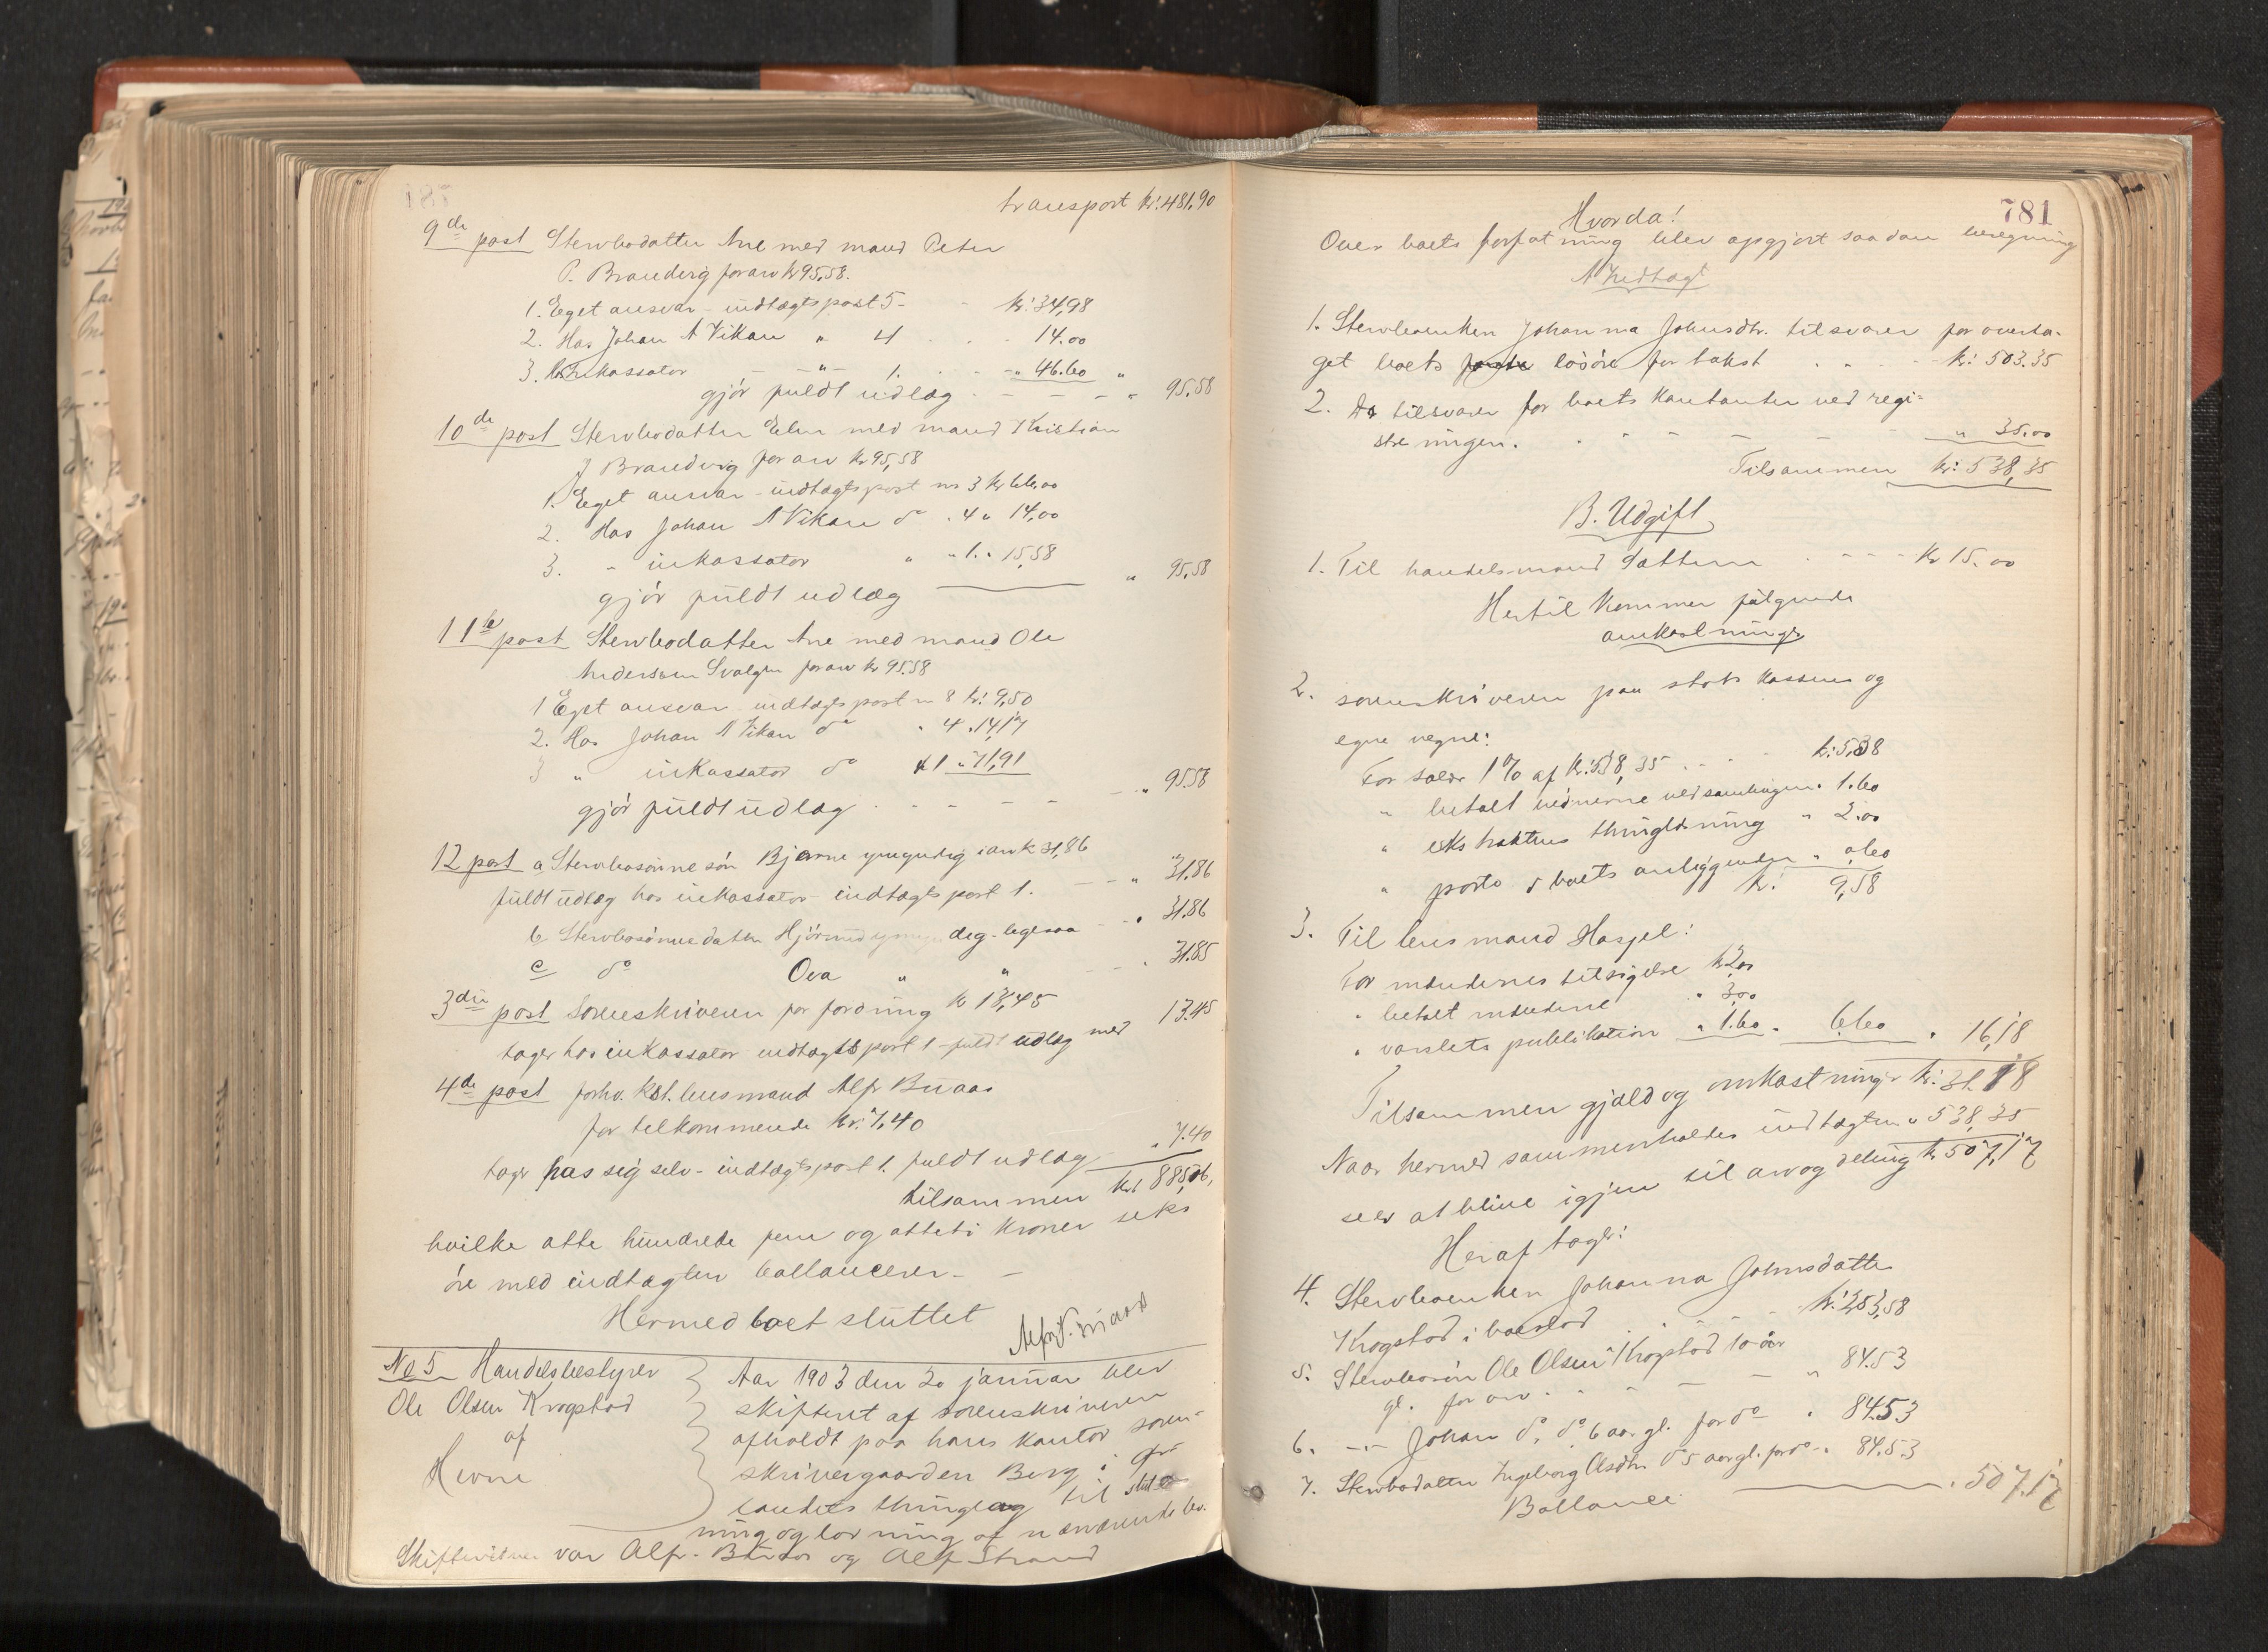 transport kr. 481,90
9de post Stervbodatter Ane med mand Peter
P. Brandvig for arv kr 95,58.
1. Eget ansvar - indtægtspost 5 - - kr. 34,98
2. Hos Johan A Vikan " 4 . . . 14.00
3. inkassator - " - 1. . . - " 46.60 "
gjør fuldt udlæg . - - - - " 95,58
10de post Stervbodatter Elen med mand Kristian
J Brandvig for arv kr 95,58
1. Eget ansvar - indtægtspost no 3 kr 66,00
2. Hos Johan A Vikan do . 4 " 14,00
3. - inkassator " " 1. " 15,58
gjør fuldt udlæg " 95,58
11te post Stervbodatter Ane med mand Ole
Anderson Svalgen for arv kr 95.58
1 Eget ansvar indtægtspost no 8 kr. 9,50
2. Hos Johan A Vikan do . 4 . 14,17
3 " inkassator do 1 " 71,91
gjør fuldt udlæg . - - - - - " 95.58
12 post a Stervbosønne søn Bjarne umyndig i arv k 31,86
fuldt udlæg hos inkassator - indtægts post 1. - - " 31.86
b Stervbosønnedatter dig - ligesaa - . 31.86
c do Ova " " - - . 31.85
3die post Sorenskriveren for fordring kr 13,45
tager hos inkassator indtægtspost 1 - fuldt udlæg med 13.45
4de post forhv. kst. lensmand Alf Buaas
for tilkommende kr. 7,40
tager hos sig selv - indtægtspost 1. fuldt udlæg " 7.40
tilsammen kr. 885,06,
hvilke otte hundrede fem og otteti kroner seks
øre med indtægten ballancerer. -
Hermed boet sluttet
No 5 Handelsbestyrer
Ole Olsen Krogstad
af
Hevne
Aar 1903 den 20 januar blev
skifteret af sorenskriveren
afholdt paa hans kontor soren-
skrivergaarden Berg i Ør-
landets thinglag til slut-
ning og lovning af nærværende bo.
Skiftevidner var Alf. Buaas og Alf Strand
781
Hvorda!
Over boets forfatning blev opgjort saadan beregning
A Indtægt
1. Stervboenken Johanna Johnsdtr. tilsvarer for overta-
get boets løsøre for takst . . . - kr. 503.35
2. Do tilsvarer for boets kontanter ved regi-
streringen. . - - - - - " 35.00
Tilsammen kr. 538,35
B. Udgift
1. Til handelsmand Sattem . - - - kr 15.00
Hertil kommer følgende
omkostninger
2. sorenskriveren paa statskassens og
egne vegne:
For salær 1% af kr. 538,35 . . - kr. 5,38
" betalt vidnerne ved samlingen . 1.60
" ekstraktens thinglæsning " 2.00
" porto i boets anliggender " 0,60
kr. 9,58
3. Til lensmand Hasfel:
For mændenes tilsigelse kr 2,00
" betalt mændene " 3,00
" varslets publikation " 1.60 . 6.60 " 16,18
Tilsammen gjæld og omkostninger kr. 31.18
Naar hermed sammenholdes indtægten " 538,35
sees at blive igjen til arv og deling kr 507,17
Heraf tager:
4. Stervboenken Johanna Johnsdatter
Krogstad i boeslod . . - - - kr. 253,58
5. Stervbosøn Ole Olsen Krogstad 10 år
gl. for arv . - - - - " 84.53
6. - " - Johan do. do 6 aar gl. for do . 84.53
7. Stervbodatter Ingeborg Olsdtr. do 5 aar gl. for do " . 84.53
Ballance . 507,17